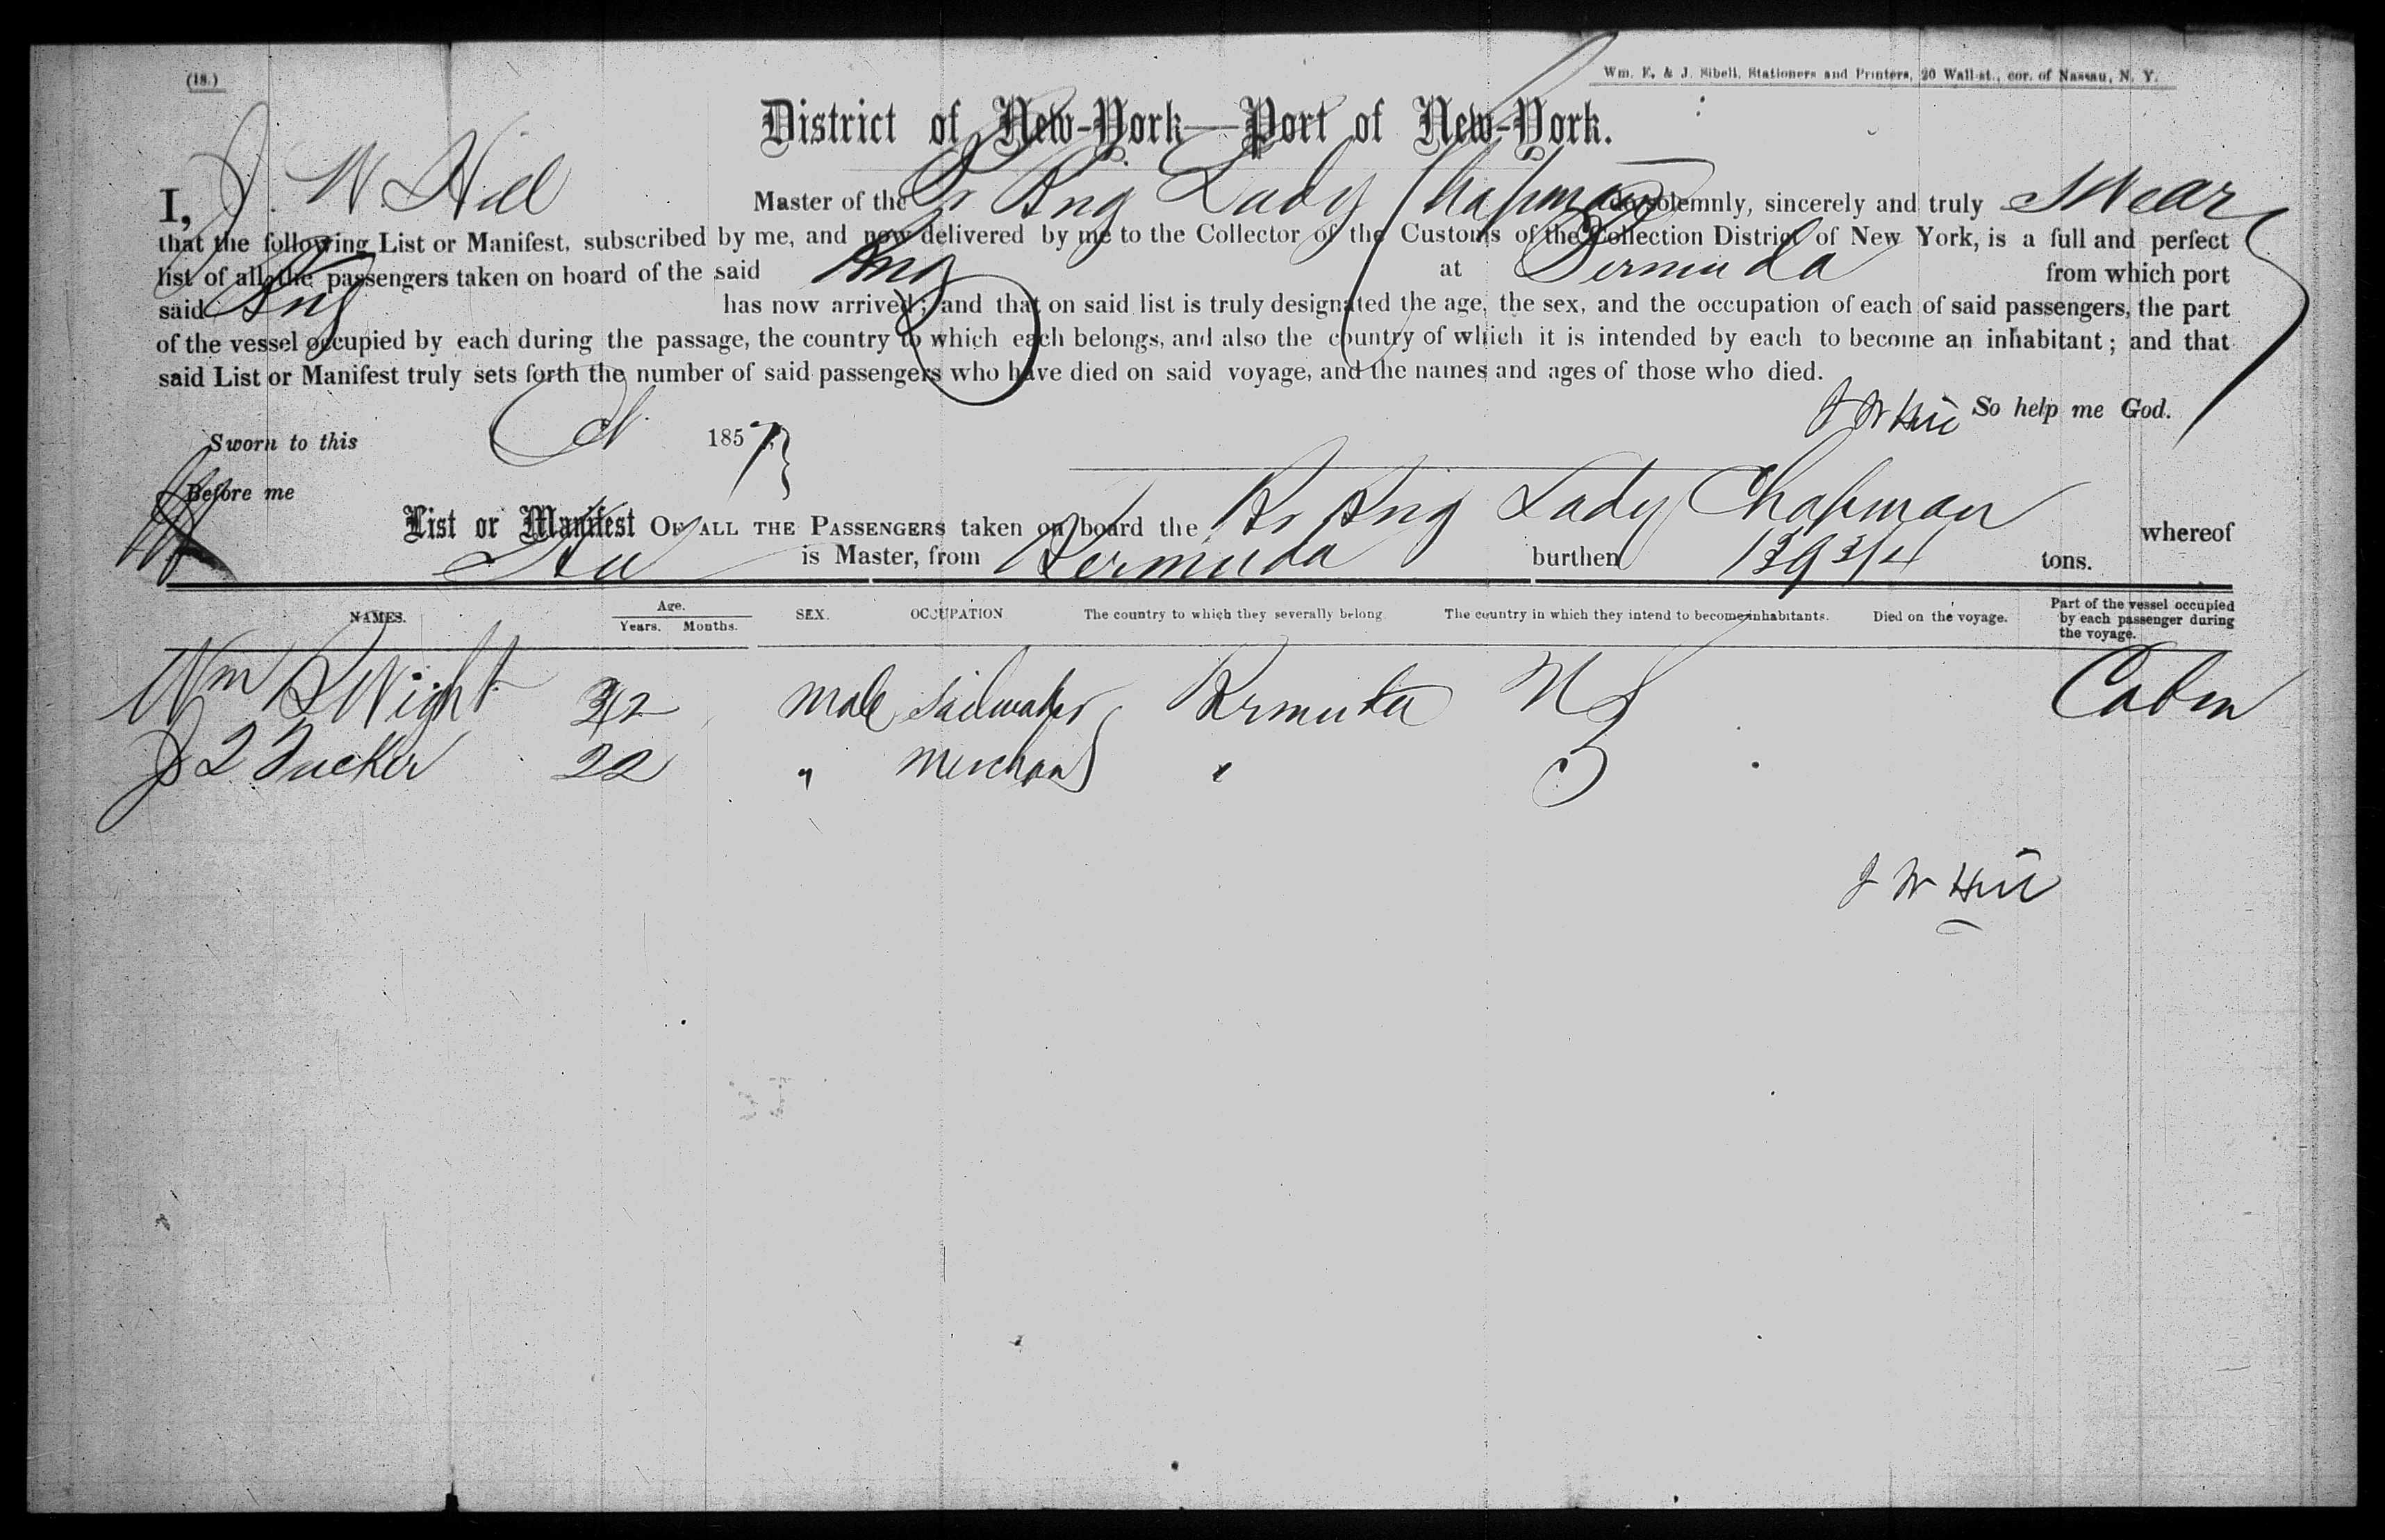 (18.)
Wm. E. & J. Sibell, Stationers and Printers, 20 Wall-st., cor. of Nassau, N. Y.
District of New-York—Port of New-York.
I, J. W. Hill Master of the Br Brig Lady Chapman do solemnly, sincerely and truly swear
that the following List or Manifest, subscribed by me, and now delivered by me to the Collector of the Customs of the Collection District of New York, is a full and perfect
list of all the passengers taken on board of the said Brig at Bermuda from which port
said Brig has now arrived; and that on said list is truly designated the age, the sex, and the occupation of each of said passengers, the part
of the vessel occupied by each during the passage, the country to which each belongs, and also the country of which it is intended by each to become an inhabitant; and that
said List or Manifest truly sets forth the number of said passengers who have died on said voyage, and the names and ages of those who died.
J W Hill So help me God.
Sworn to this 1857
Before me
List or Manifest OF ALL THE PASSENGERS taken on board the Br Brig Lady Chapman whereof
Hill is Master, from Bermuda burthen 139 3/4 tons.
NAMES. Age. Years. Months. SEX. OCCUPATION The country to which they severally belong. The country in which they intend to become inhabitants. Died on the voyage. Part of the vessel occupied by each passenger during the voyage.
Wm Wight 32 male sailmaker Bermuda Cabin
J Tucker 22 " Merchant "
J W Hill